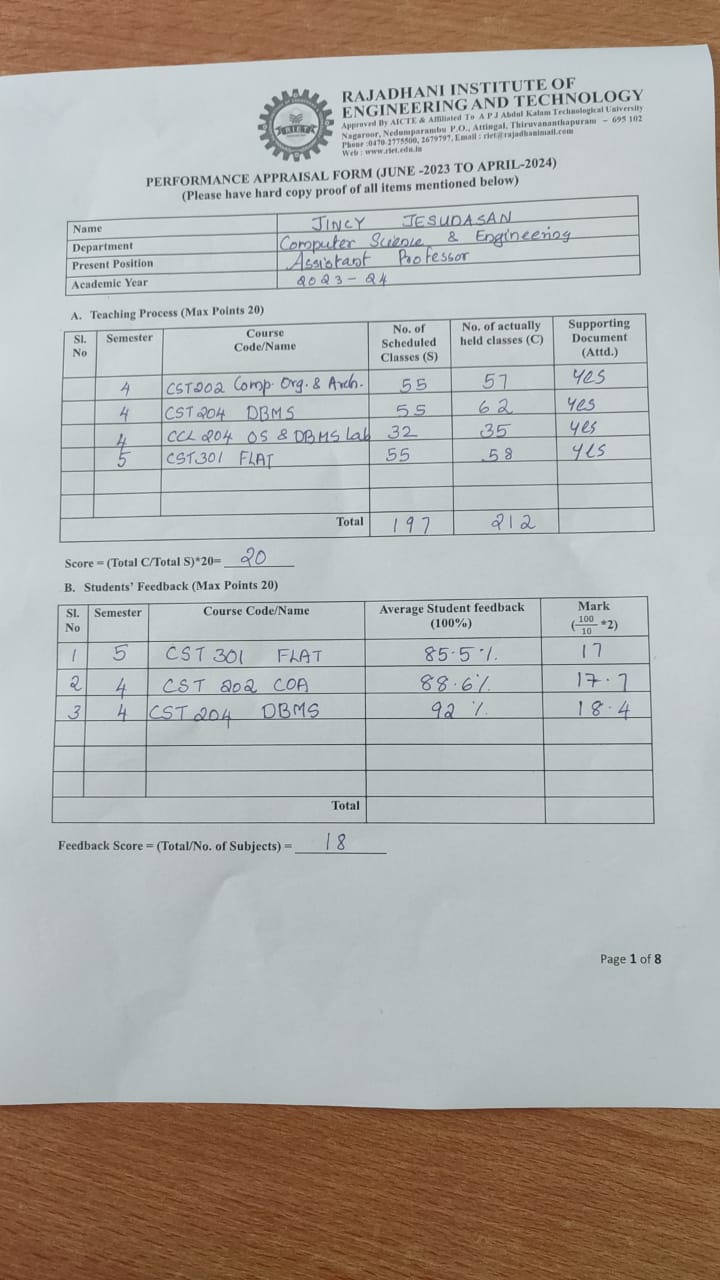 RIET
RAJADHANI INSTITUTE OF
ENGINEERING AND TECHNOLOGY
Approved By AICTE & Affiliated To A P J Abdul Kalam Technological University
Nagaroor, Nedumparambu P.O., Attingal, Thiruvananthapuram - 695 102
Phone :0470 2775500, 2679797, Email : riet@rajadhanimail.com
Web : www.riet.edu.in
PERFORMANCE APPRAISAL FORM (JUNE -2023 TO APRIL-2024)
(Please have hard copy proof of all items mentioned below)
Name JINCY JESUDASAN
Department Computer Science & Engineering
Present Position Assistant Professor
Academic Year 2023-24
A. Teaching Process (Max Points 20)
Sl. No Semester Course Code/Name No. of Scheduled Classes (S) No. of actually held classes (C) Supporting Document (Attd.)
4 CST202 Comp. Org. & Arch. 55 57 Yes
4 CST 204 DBMS 55 62 Yes
4 CCL 204 OS & DBMS Lab 32 35 yes
5 CST301 FLAT 55 58 yes
Total 197 212
Score = (Total C/Total S)*20= 20
B. Students' Feedback (Max Points 20)
Sl. No Semester Course Code/Name Average Student feedback (100%) Mark (100/10 *2)
1 5 CST 301 FLAT 85.5% 17
2 4 CST 202 COA 88.6% 17.7
3 4 CST 204 DBMS 92% 18.4
Total
Feedback Score = (Total/No. of Subjects) = 18
Page 1 of 8